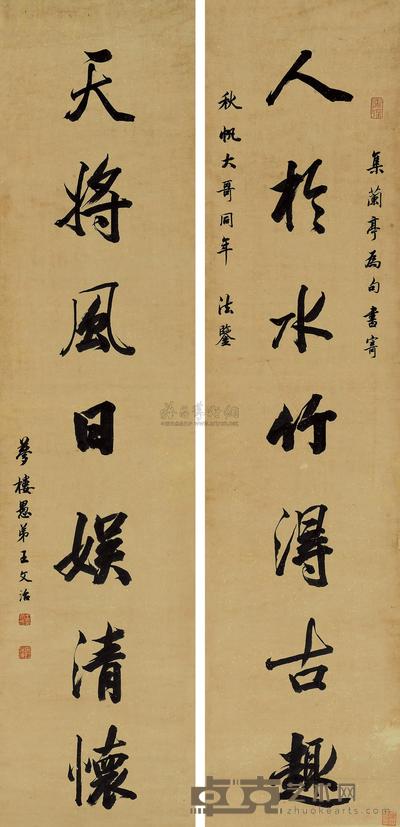 集蘭亭為句書寄
人於水竹得古趣
秋帆大哥同年 法鑒
天將風日娛清懷
夢樓愚弟王文治
卓克艺术网
zhuokearts.com